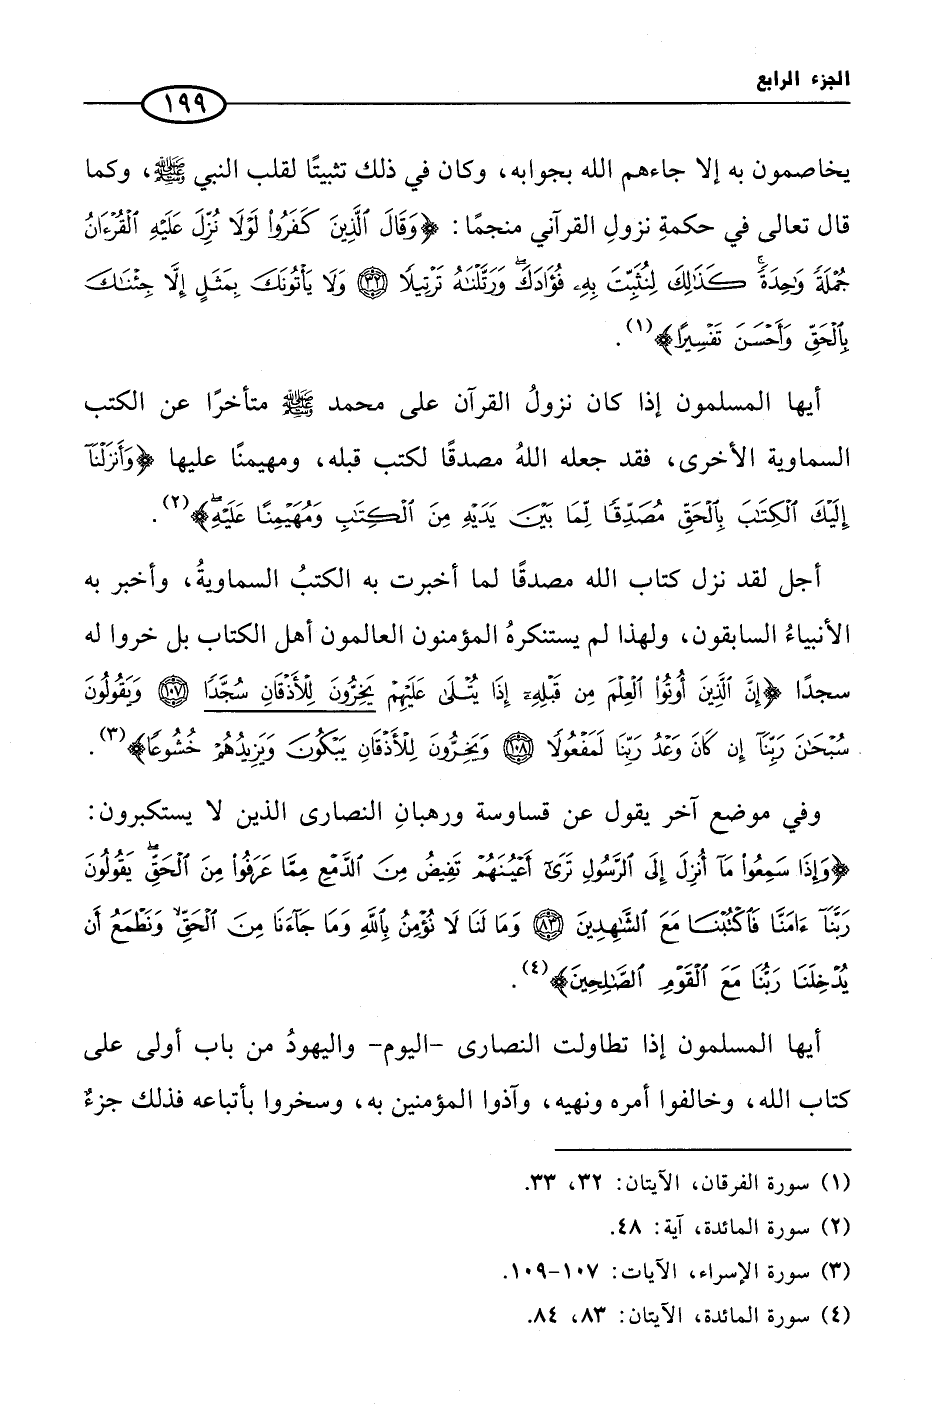 الجزء الرابع
١٩٩
يخاصمون به إلا جاءهم الله بجوابه، وكان في ذلك تثبيتًا لقلب النبي ﷺ، وكما
قال تعالى في حكمةِ نزولِ القرآني منجمًا: ﴿وَقَالَ ٱلَّذِينَ كَفَرُواْ لَوۡلَا نُزِّلَ عَلَيۡهِ ٱلۡقُرۡءَانُ
جُمۡلَةٗ وَٰحِدَةٗۚ كَذَٰلِكَ لِنُثَبِّتَ بِهِۦ فُؤَادَكَۖ وَرَتَّلۡنَٰهُ تَرۡتِيلٗا ٣٢ وَلَا يَأۡتُونَكَ بِمَثَلٍ إِلَّا جِئۡنَٰكَ
بِٱلۡحَقِّ وَأَحۡسَنَ تَفۡسِيرًا﴾(١).
أيها المسلمون إذا كان نزولُ القرآن على محمد ﷺ متأخرًا عن الكتب
السماوية الأخرى، فقد جعله اللهُ مصدقًا لكتب قبله، ومهيمنًا عليها ﴿وَأَنزَلۡنَآ
إِلَيۡكَ ٱلۡكِتَٰبَ بِٱلۡحَقِّ مُصَدِّقٗا لِّمَا بَيۡنَ يَدَيۡهِ مِنَ ٱلۡكِتَٰبِ وَمُهَيۡمِنًا عَلَيۡهِۖ﴾(٢).
أجل لقد نزل كتاب الله مصدقًا لما أخبرت به الكتبُ السماويةُ، وأخبر به
الأنبياءُ السابقون، ولهذا لم يستنكرهُ المؤمنون العالمون أهل الكتاب بل خروا له
سجدًا ﴿إِنَّ ٱلَّذِينَ أُوتُواْ ٱلۡعِلۡمَ مِن قَبۡلِهِۦٓ إِذَا يُتۡلَىٰ عَلَيۡهِمۡ يَخِرُّونَ لِلۡأَذۡقَانِ سُجَّدٗا ١٠٧ وَيَقُولُونَ
سُبۡحَٰنَ رَبِّنَآ إِن كَانَ وَعۡدُ رَبِّنَا لَمَفۡعُولٗا ١٠٨ وَيَخِرُّونَ لِلۡأَذۡقَانِ يَبۡكُونَ وَيَزِيدُهُمۡ خُشُوعٗا﴾(٣).
وفي موضع آخر يقول عن قساوسة ورهبانِ النصارى الذين لا يستكبرون:
﴿وَإِذَا سَمِعُواْ مَآ أُنزِلَ إِلَى ٱلرَّسُولِ تَرَىٰٓ أَعۡيُنَهُمۡ تَفِيضُ مِنَ ٱلدَّمۡعِ مِمَّا عَرَفُواْ مِنَ ٱلۡحَقِّۖ يَقُولُونَ
رَبَّنَآ ءَامَنَّا فَٱكۡتُبۡنَا مَعَ ٱلشَّٰهِدِينَ ٨٣ وَمَا لَنَا لَا نُؤۡمِنُ بِٱللَّهِ وَمَا جَآءَنَا مِنَ ٱلۡحَقِّ وَنَطۡمَعُ أَن
يُدۡخِلَنَا رَبُّنَا مَعَ ٱلۡقَوۡمِ ٱلصَّٰلِحِينَ﴾(٤).
أيها المسلمون إذا تطاولت النصارى -اليوم- واليهودُ من باب أولى على
كتاب الله، وخالفوا أمره ونهيه، وآذوا المؤمنين به، وسخروا بأتباعه فذلك جزءٌ
(١) سورة الفرقان، الآيتان: ٣٢، ٣٣.
(٢) سورة المائدة، آية: ٤٨.
(٣) سورة الإسراء، الآيات: ١٠٧-١٠٩.
(٤) سورة المائدة، الآيتان: ٨٣، ٨٤.